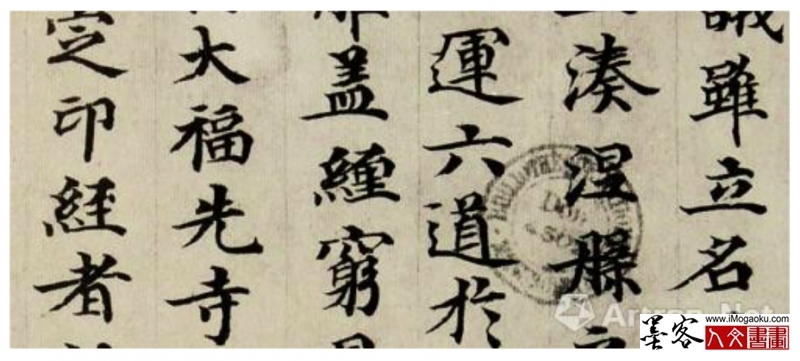 議雖立名
湊涅槃
運六道於
蓋纏窮
大福先寺
定印經者
墨客
人文書畫
www.iMogaoku.com